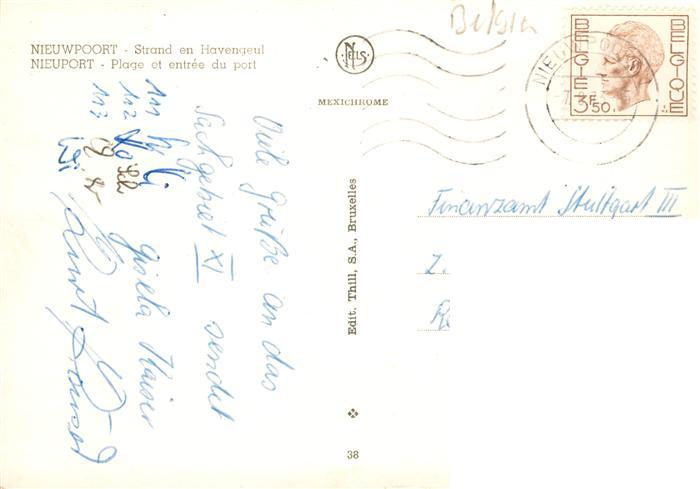 NIEUWPOORT - Strand en Havengeul
NIEUPORT - Plage et entrée du port
NELS
MEXICHROME
Belgien
BELGIE
BELGIQUE
3F50
NIEUWPOORT
Finanzamt Stuttgart III
Z.
Viele Grüße an das
Sachgebiet XI sendet
Gisela Kaiser
111
112
113
Edit. Thill, S.A., Bruxelles
38